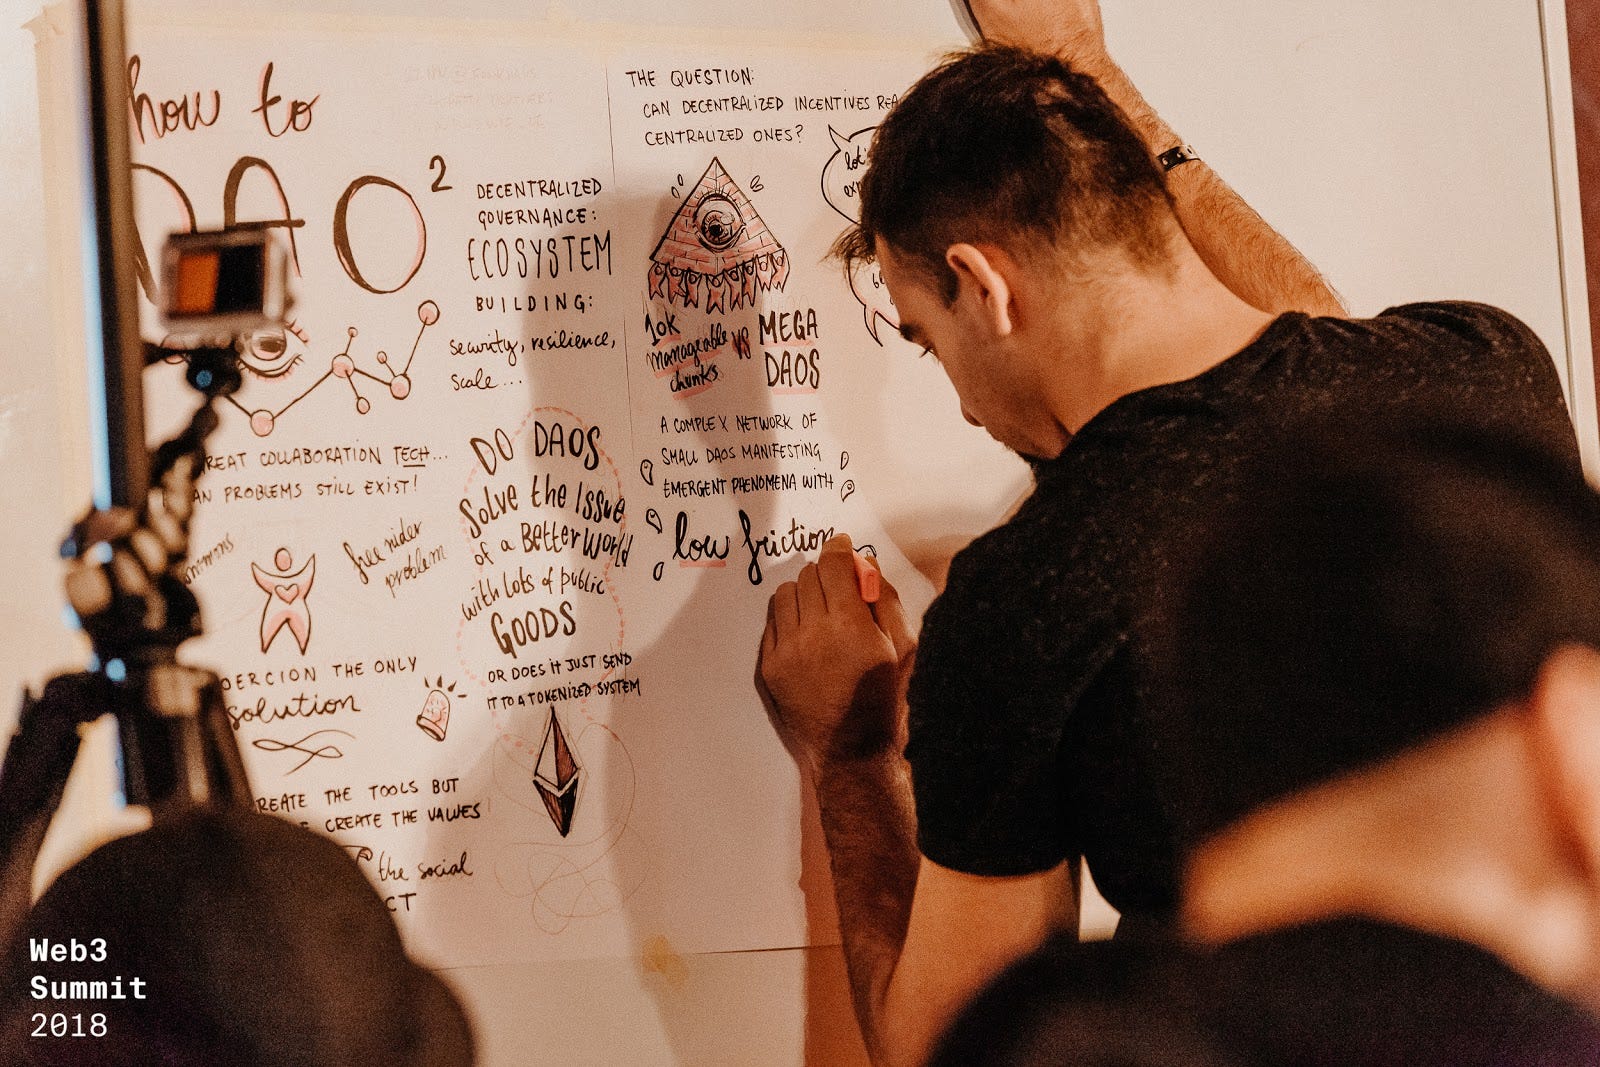 how to
DAO²
DECENTRALIZED
GOVERNANCE:
ECOSYSTEM
BUILDING:
security, resilience,
scale...
REAT COLLABORATION TECH...
AN PROBLEMS STILL EXIST!
mmons
free rider
problem
OERCION THE ONLY
solution
REATE THE TOOLS BUT
E CREATE THE VALUES
the social
CT
DO DAOS
Solve the Issue
of a Better World
with Lots of public
GOODS
OR DOES IT JUST SEND
IT TO A TOKENIZED SYSTEM
THE QUESTION:
CAN DECENTRALIZED INCENTIVES REA
CENTRALIZED ONES?
lot's
10K
manageable
chunks
VS
MEGA
DAOS
A COMPLEX NETWORK OF
SMALL DAOS MANIFESTING
EMERGENT PHENOMENA WITH
low friction
Web3
Summit
2018